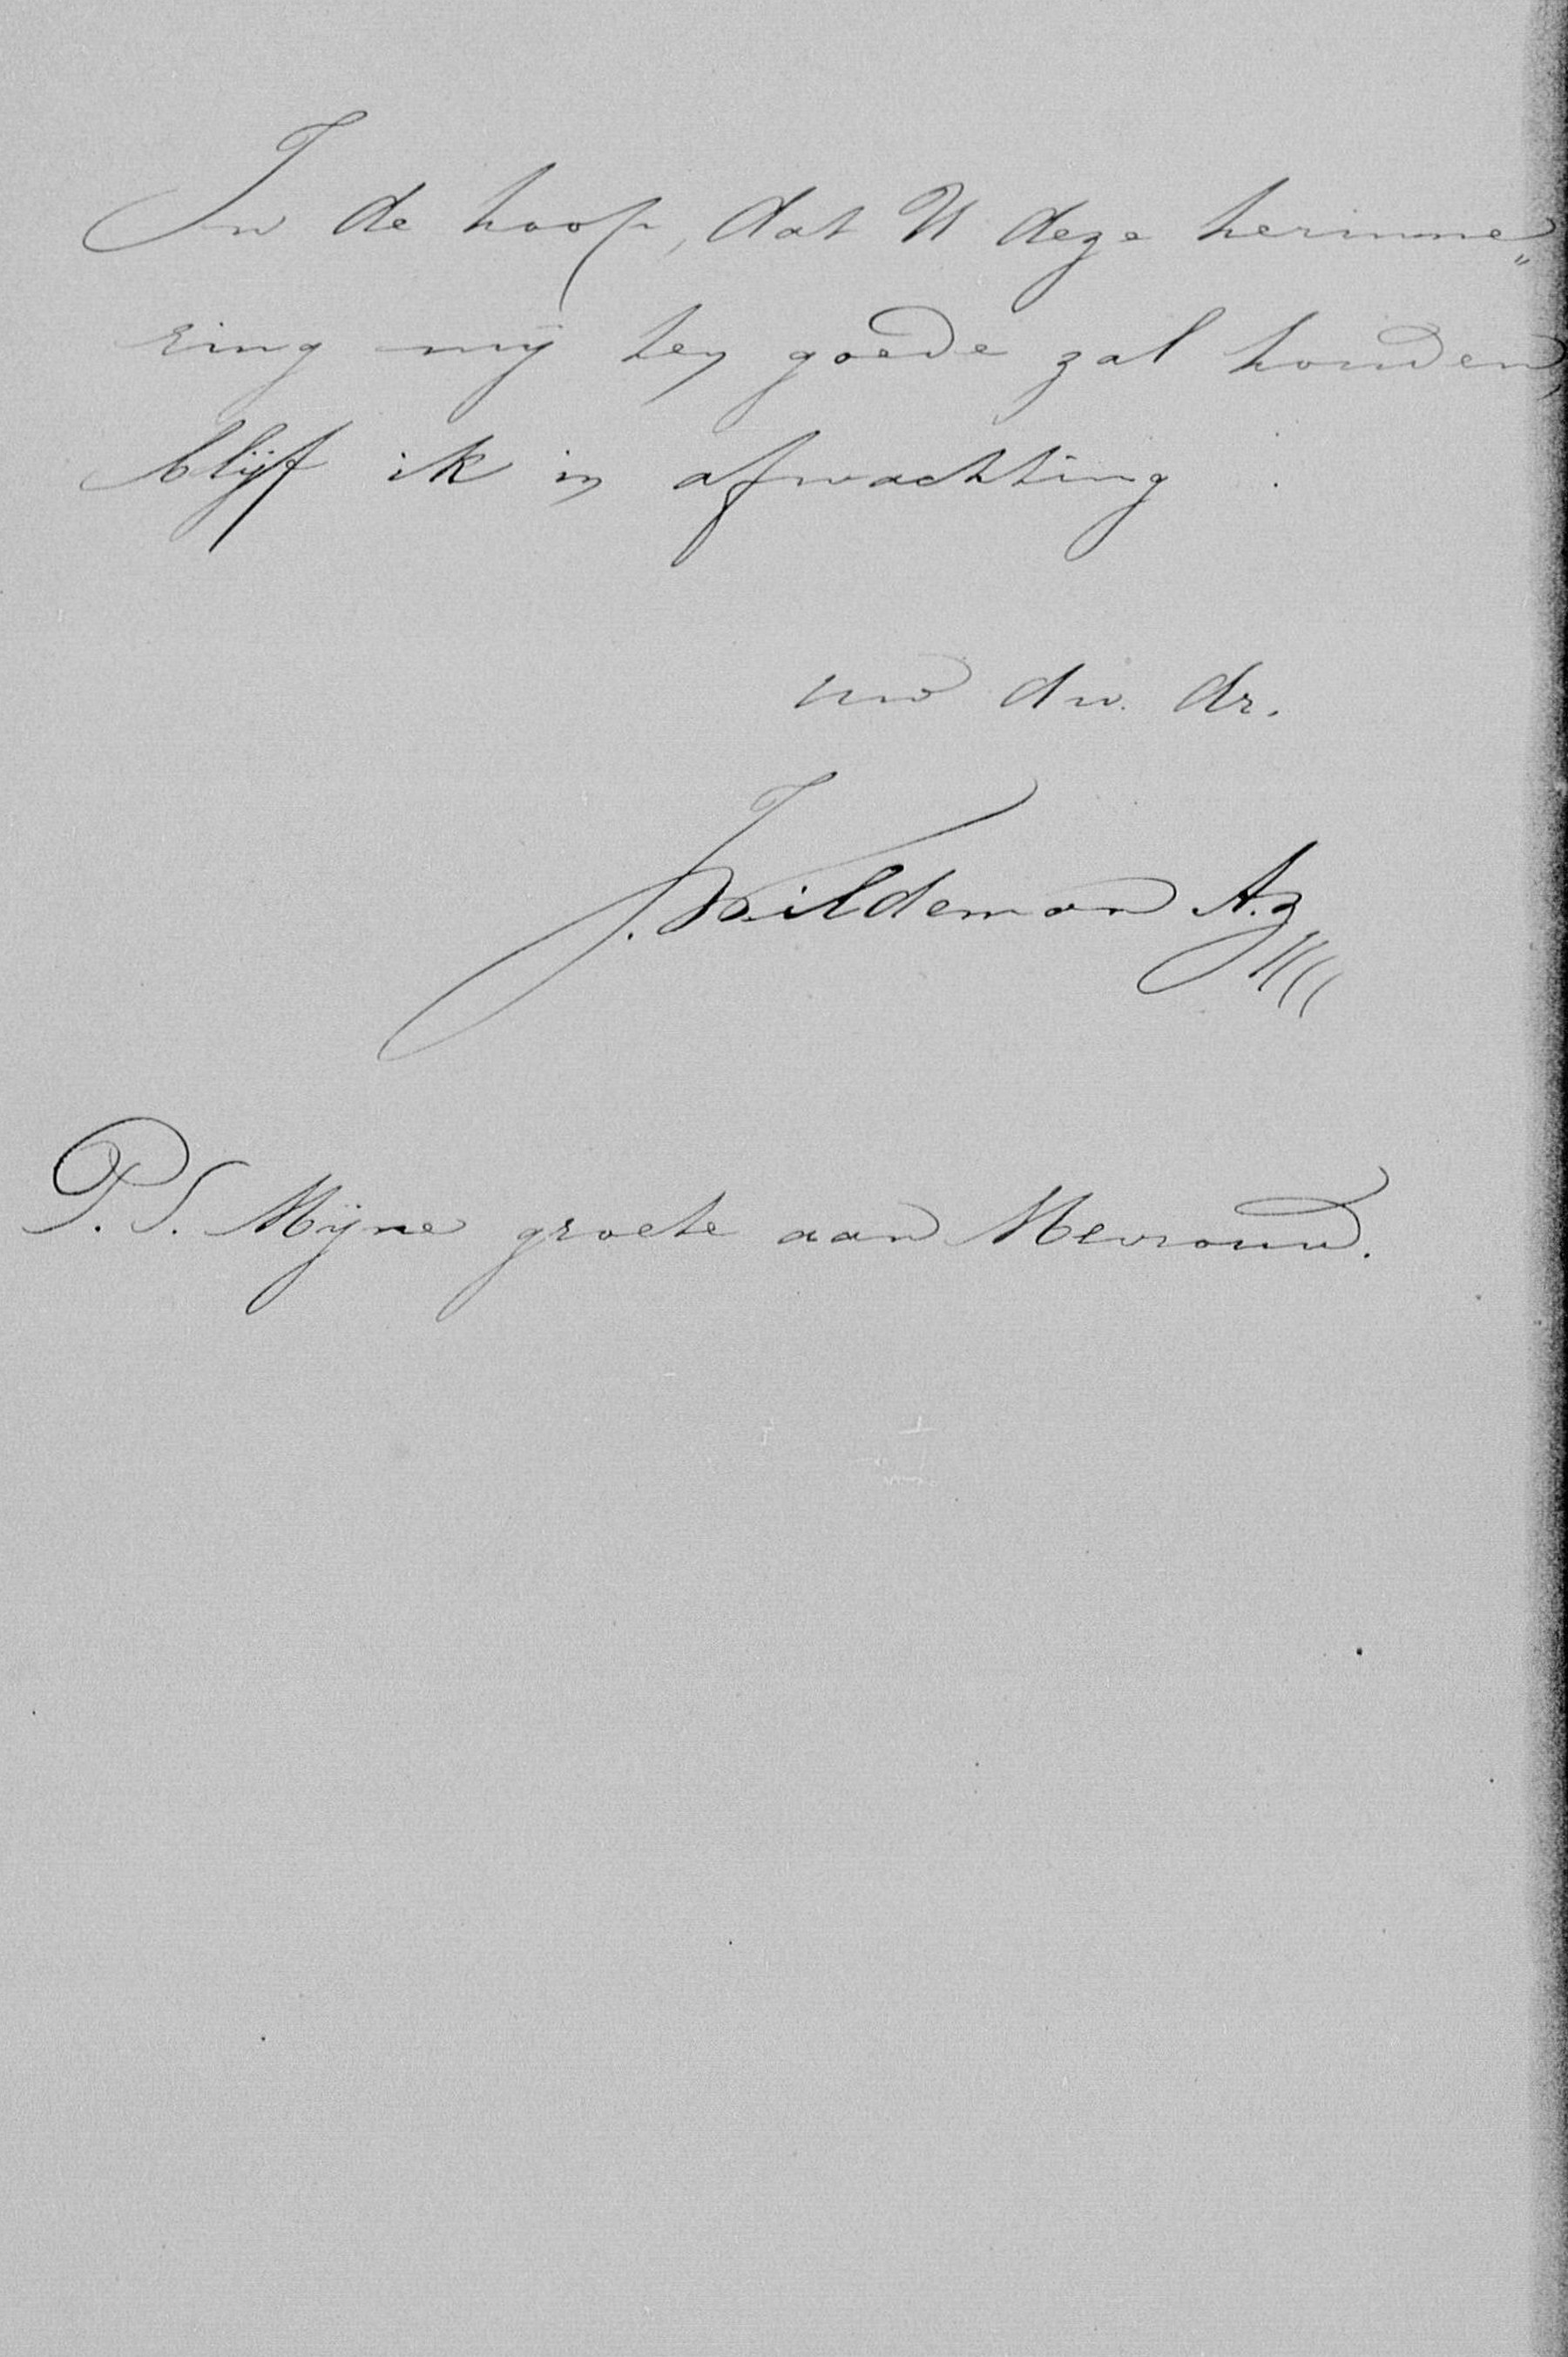 In de hoop, dat U deze herinne„
ring mij ten goede zal houden,
blijf ik in afwachting
uw dw. dr.
J. Wildeman A.z
P.S. Mijne groete aan Mevrouw.